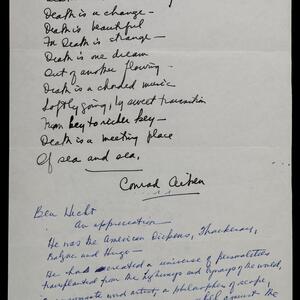 Death is a change —
Death is beautiful
For Death is strange —
Death is one dream
Out of another flowing —
Death is a chorded music
Softly going, by sweet transition
From key to richer key —
Death is a meeting place
Of sea and sea.
Conrad Aiken
Ben Hecht
An appreciation —
He was the American Dickens, Thackeray,
Balzac and Hugo —
He had created a universe of personalities
transplanted from the highways and byways of the world,
word artist, a philosopher of scope,
against the